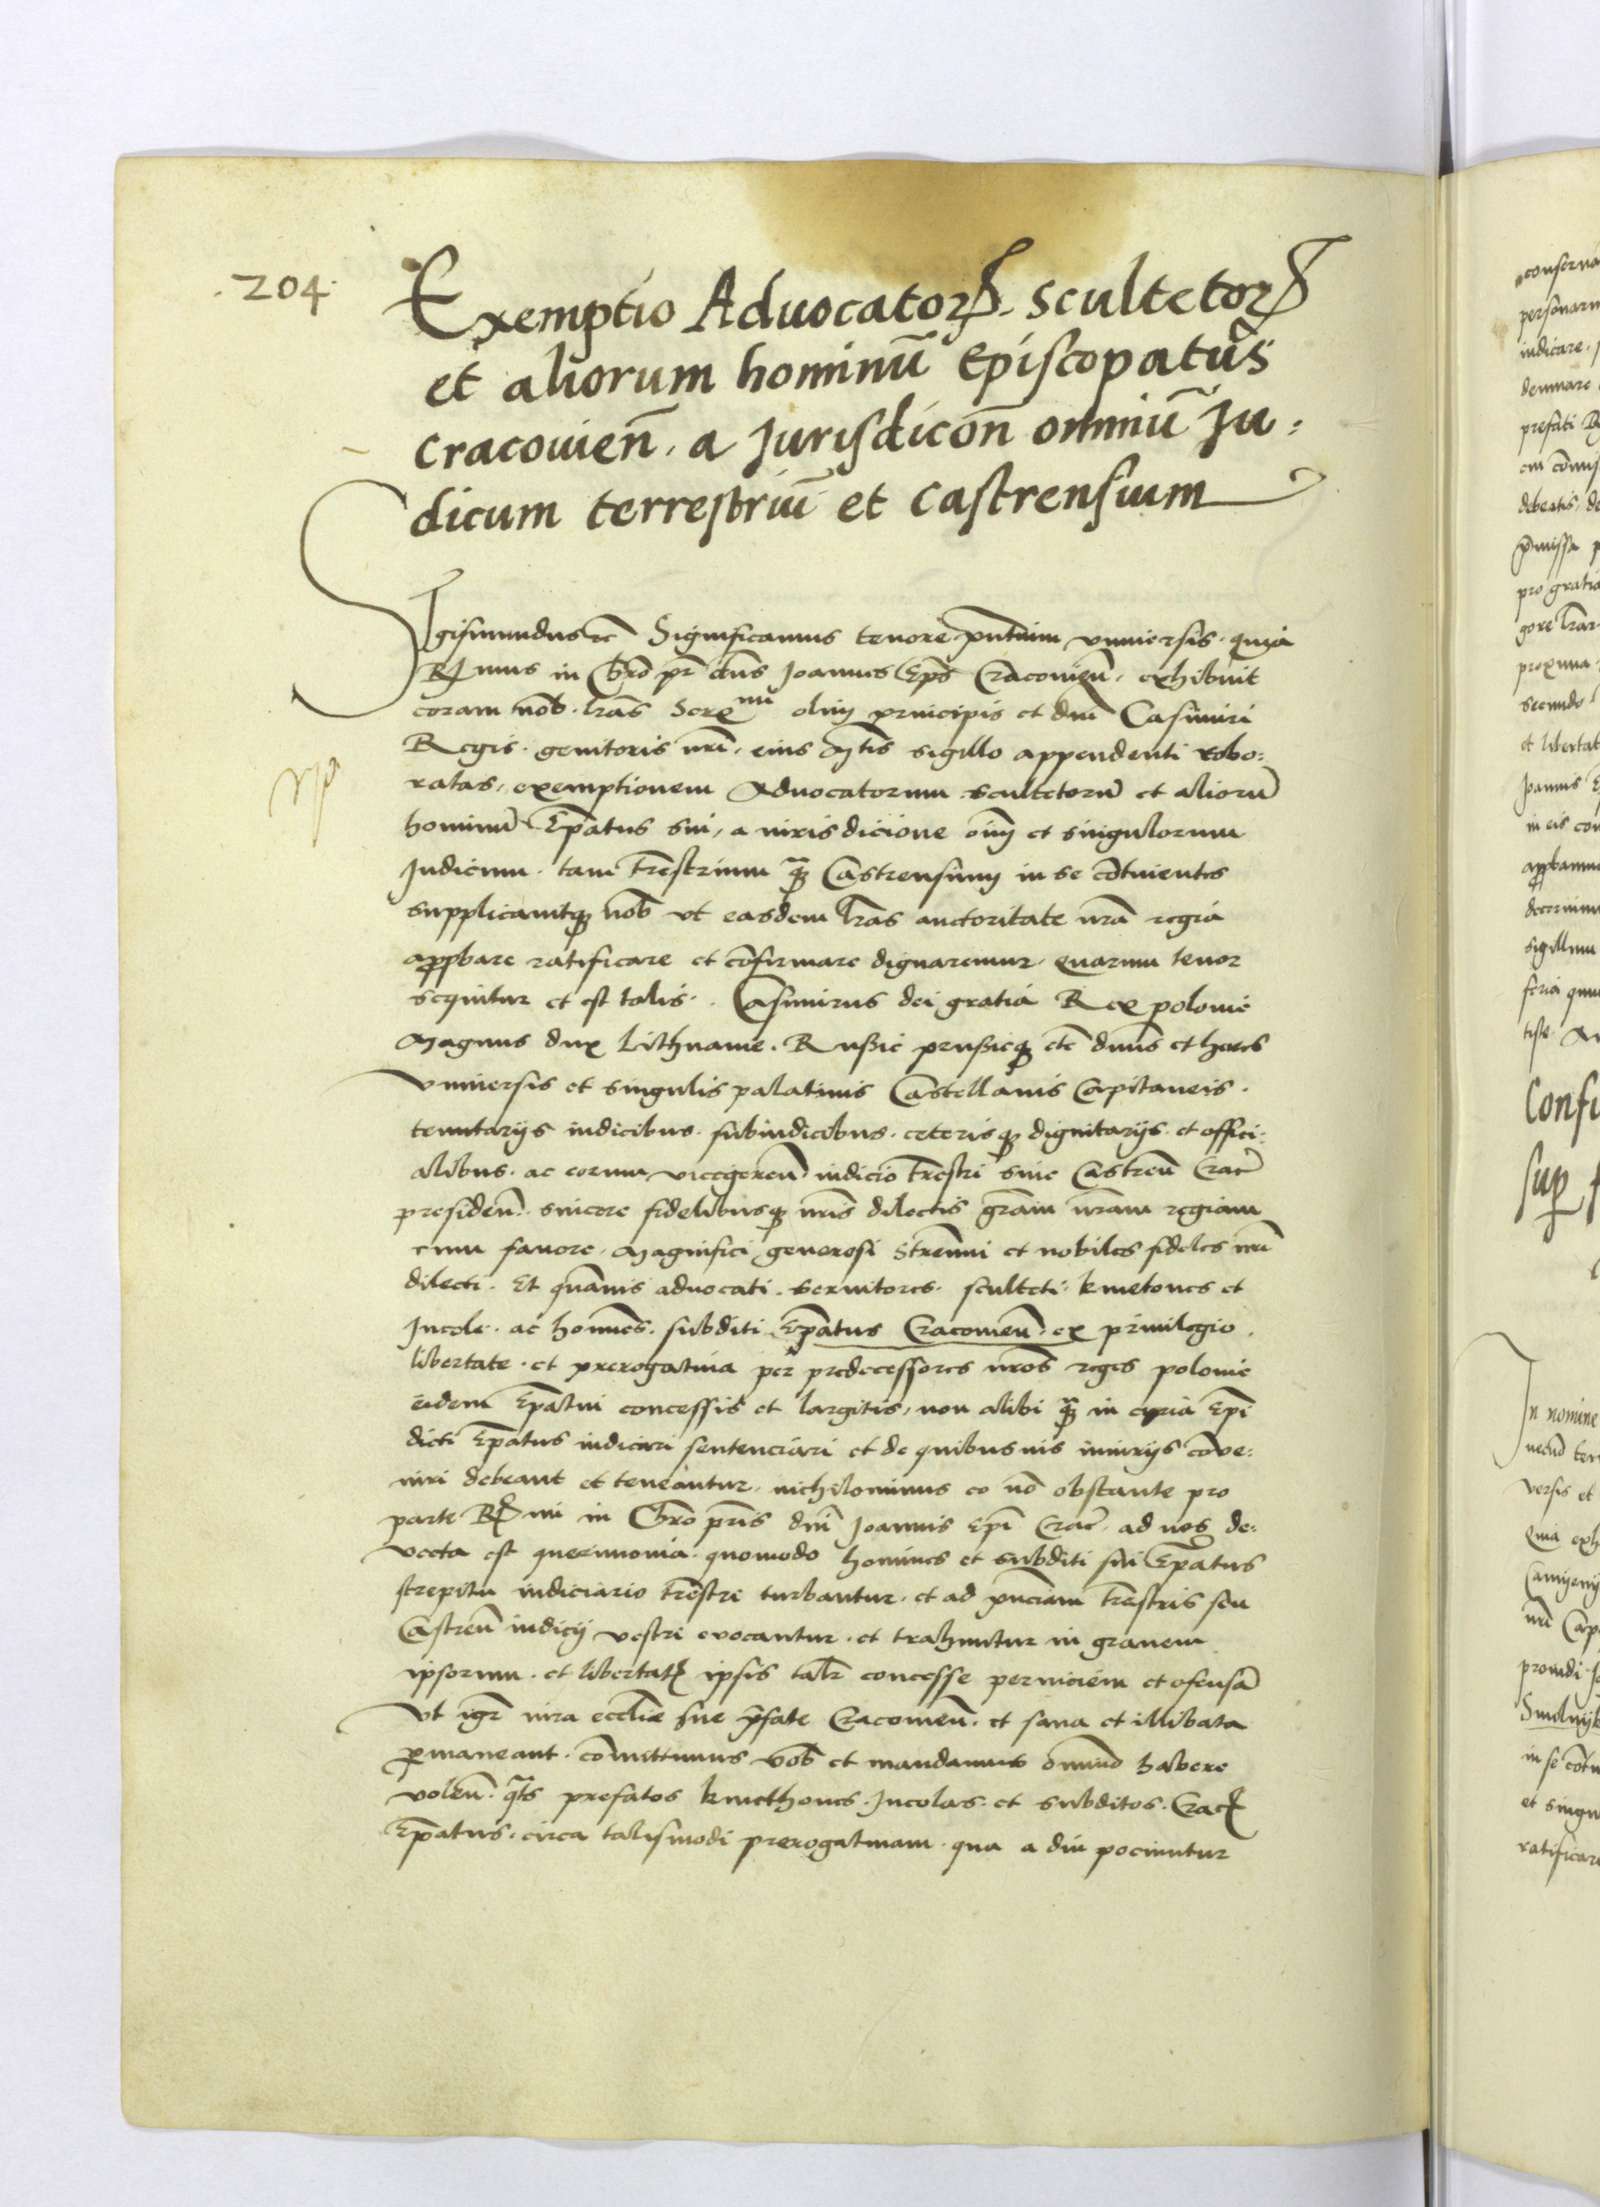 .204.
Exemptio Aduocatorꝝ. Scultetorꝝ
et aliorum hominū Episcopatus
Cracouieñ. a Jurisdicoñ omniū Ju:
dicum terrestriū et Castrensium
Sigismundus rc̄ Significamus tenore pn̄tium vniuersis. quia
Rꝫmus in Chrō pr̄ dn̄s Joannes Ep̄s Cracouieñ. exhibuit
coram nob̄. lr̄as Sereᵐⁱ olim principis et dn̄i Casimiri
Regis. genitoris nr̄i. eius M̄tis sigillo appendenti robo:
ratas, exemptionem Aduocatorum scultetorū et aliorū
hominū Ep̄atus sui, a iurisdicione oīm et singulorum
Judicum. tam tr̄estrium ꝗ̄ Castrensium in se cōtinentes
supplicauitqꝫ nob̄ vt easdem lr̄as auctoritate nr̄a regia
approbare ratificare et cōfirmare dignaremur. quarum tenor
sequitur et est talis. Casimirus dei gratia Rex polonie
Magnus dux Lithuanie. Russie prussieqꝫ etc̄ dn̄us et heres
Vniuersis et singulis palatinis Castellanis Capitaneis.
tenutarijs iudicibus. subiudicibus. ceterisqꝫ dignitarijs. et offici:
alibus. ac eorum vicegereñ iudicio tr̄estri siue Castreñ Crac̄
presideñ. sincere fidelibusqꝫ nr̄is dilectis gr̄am nr̄am regiam
cum fauore. Magnifici generosi Strennui et nobiles fideles nr̄i
dilecti. Et quāuis aduocati. seruitores. sculteti. kmetones et
Incole. ac homines. subditi Ep̄atus Cracouieñ. ex priuilegio.
libertate. et prerogatiua per predecessores nr̄os reges polonie
eidem Ep̄atui concessis et largitis, non alibi ꝗ̄ in curia Ep̄i
dicti Ep̄atus iudicari sentenciari et de quibusuis iniurijs cōue:
niri debeant et teneantur. nichilominus eo nō obstante pro
parte Rꝫmi in Chrō pr̄is dn̄i Joannis Ep̄i Crac̄. ad nos de:
uecta est querimonia. quomodo homines et subditi sui Ep̄atus
strepitu iudiciario tr̄estri turbantur. et ad pn̄ciam tr̄estris seu
Castreñ iudicij vestri euocantur. et trahuntur in grauem
ipsorum. et libertatꝭ ipsis talr̄ concesse perniciem et ofensā
Vt igr̄ iura eccl̄ie sue p̄fate Cracouieñ. et sana et illibata
ꝑmaneant. cōmittimus vob̄ et mandamus oīmino habere
voleñ. qt̄s prefatos kmethones. Incolas. et subditos. Crac̄
Ep̄atus. circa talismodi prerogatiuam. qua a diu pociuntur